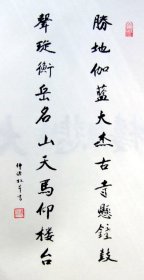 勝地伽藍大杰古寺懸鐘鼓
聲璇衡岳名山天馬仰楼台